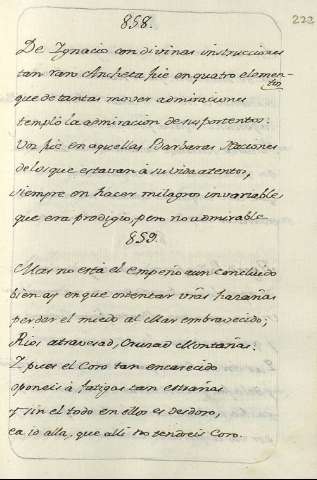 858.
223
De Ignacio con divinas instrucciones
tan raro Ancheta fué en quatro elemen-
tos
que de tantas mover admiraciones
templó la admiracion de sus portentos:
Voz fué en aquellas Barbaras Naciones
de los que estavan à su vida atentos,
siempre en hacer milagros invariable,
que era prodigio, pero no admirable.
859.
Mas no está el empeño aun concluido
bien ay en que ostentar uras hazañas
perder el miedo al Mar embravecido,
Rios atravesad, Cruzad Montañas:
Y pues el Coro tan encarecido
oponeis à fatigas tan estrañas
y sin el todo en ellos es desdoro,
ea id alla, que alli no tendreis Coro.